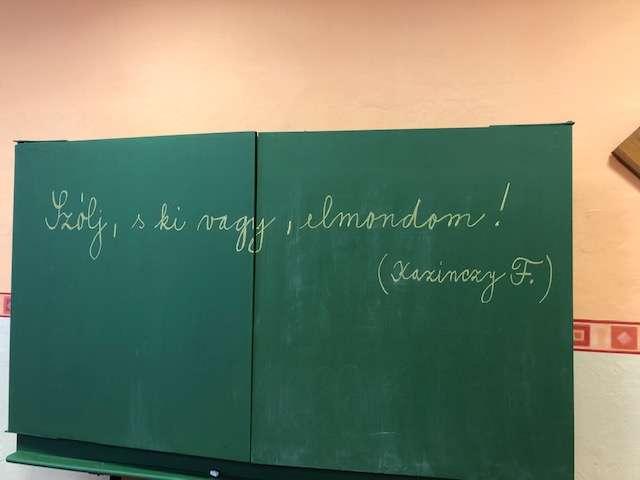 Szólj, s ki vagy, elmondom!
(Kazinczy F.)